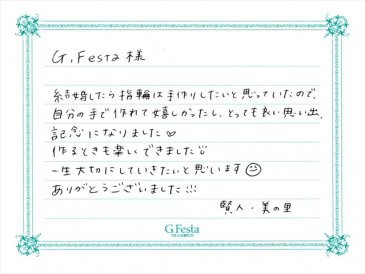 G.Festa 様
結婚したら指輪は手作りしたいと思っていたので、
自分の手で作れて嬉しかったし、とっても良い思い出、
記念になりました♡
作るときも楽しくできました♡
一生大切にしていきたいと思います☺
ありがとうございました!!!
賢人・美の里
G.Festa
DIAMOND